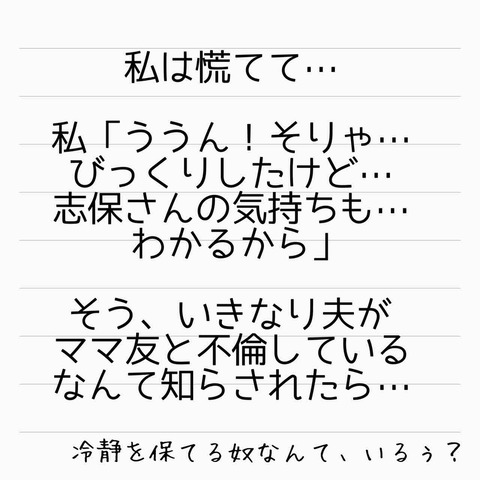 私は慌てて…
私「ううん！そりゃ…
びっくりしたけど…
志保さんの気持ちも…
わかるから」
そう、いきなり夫が
ママ友と不倫している
なんて知らされたら…
冷静を保てる奴なんて、いるぅ？